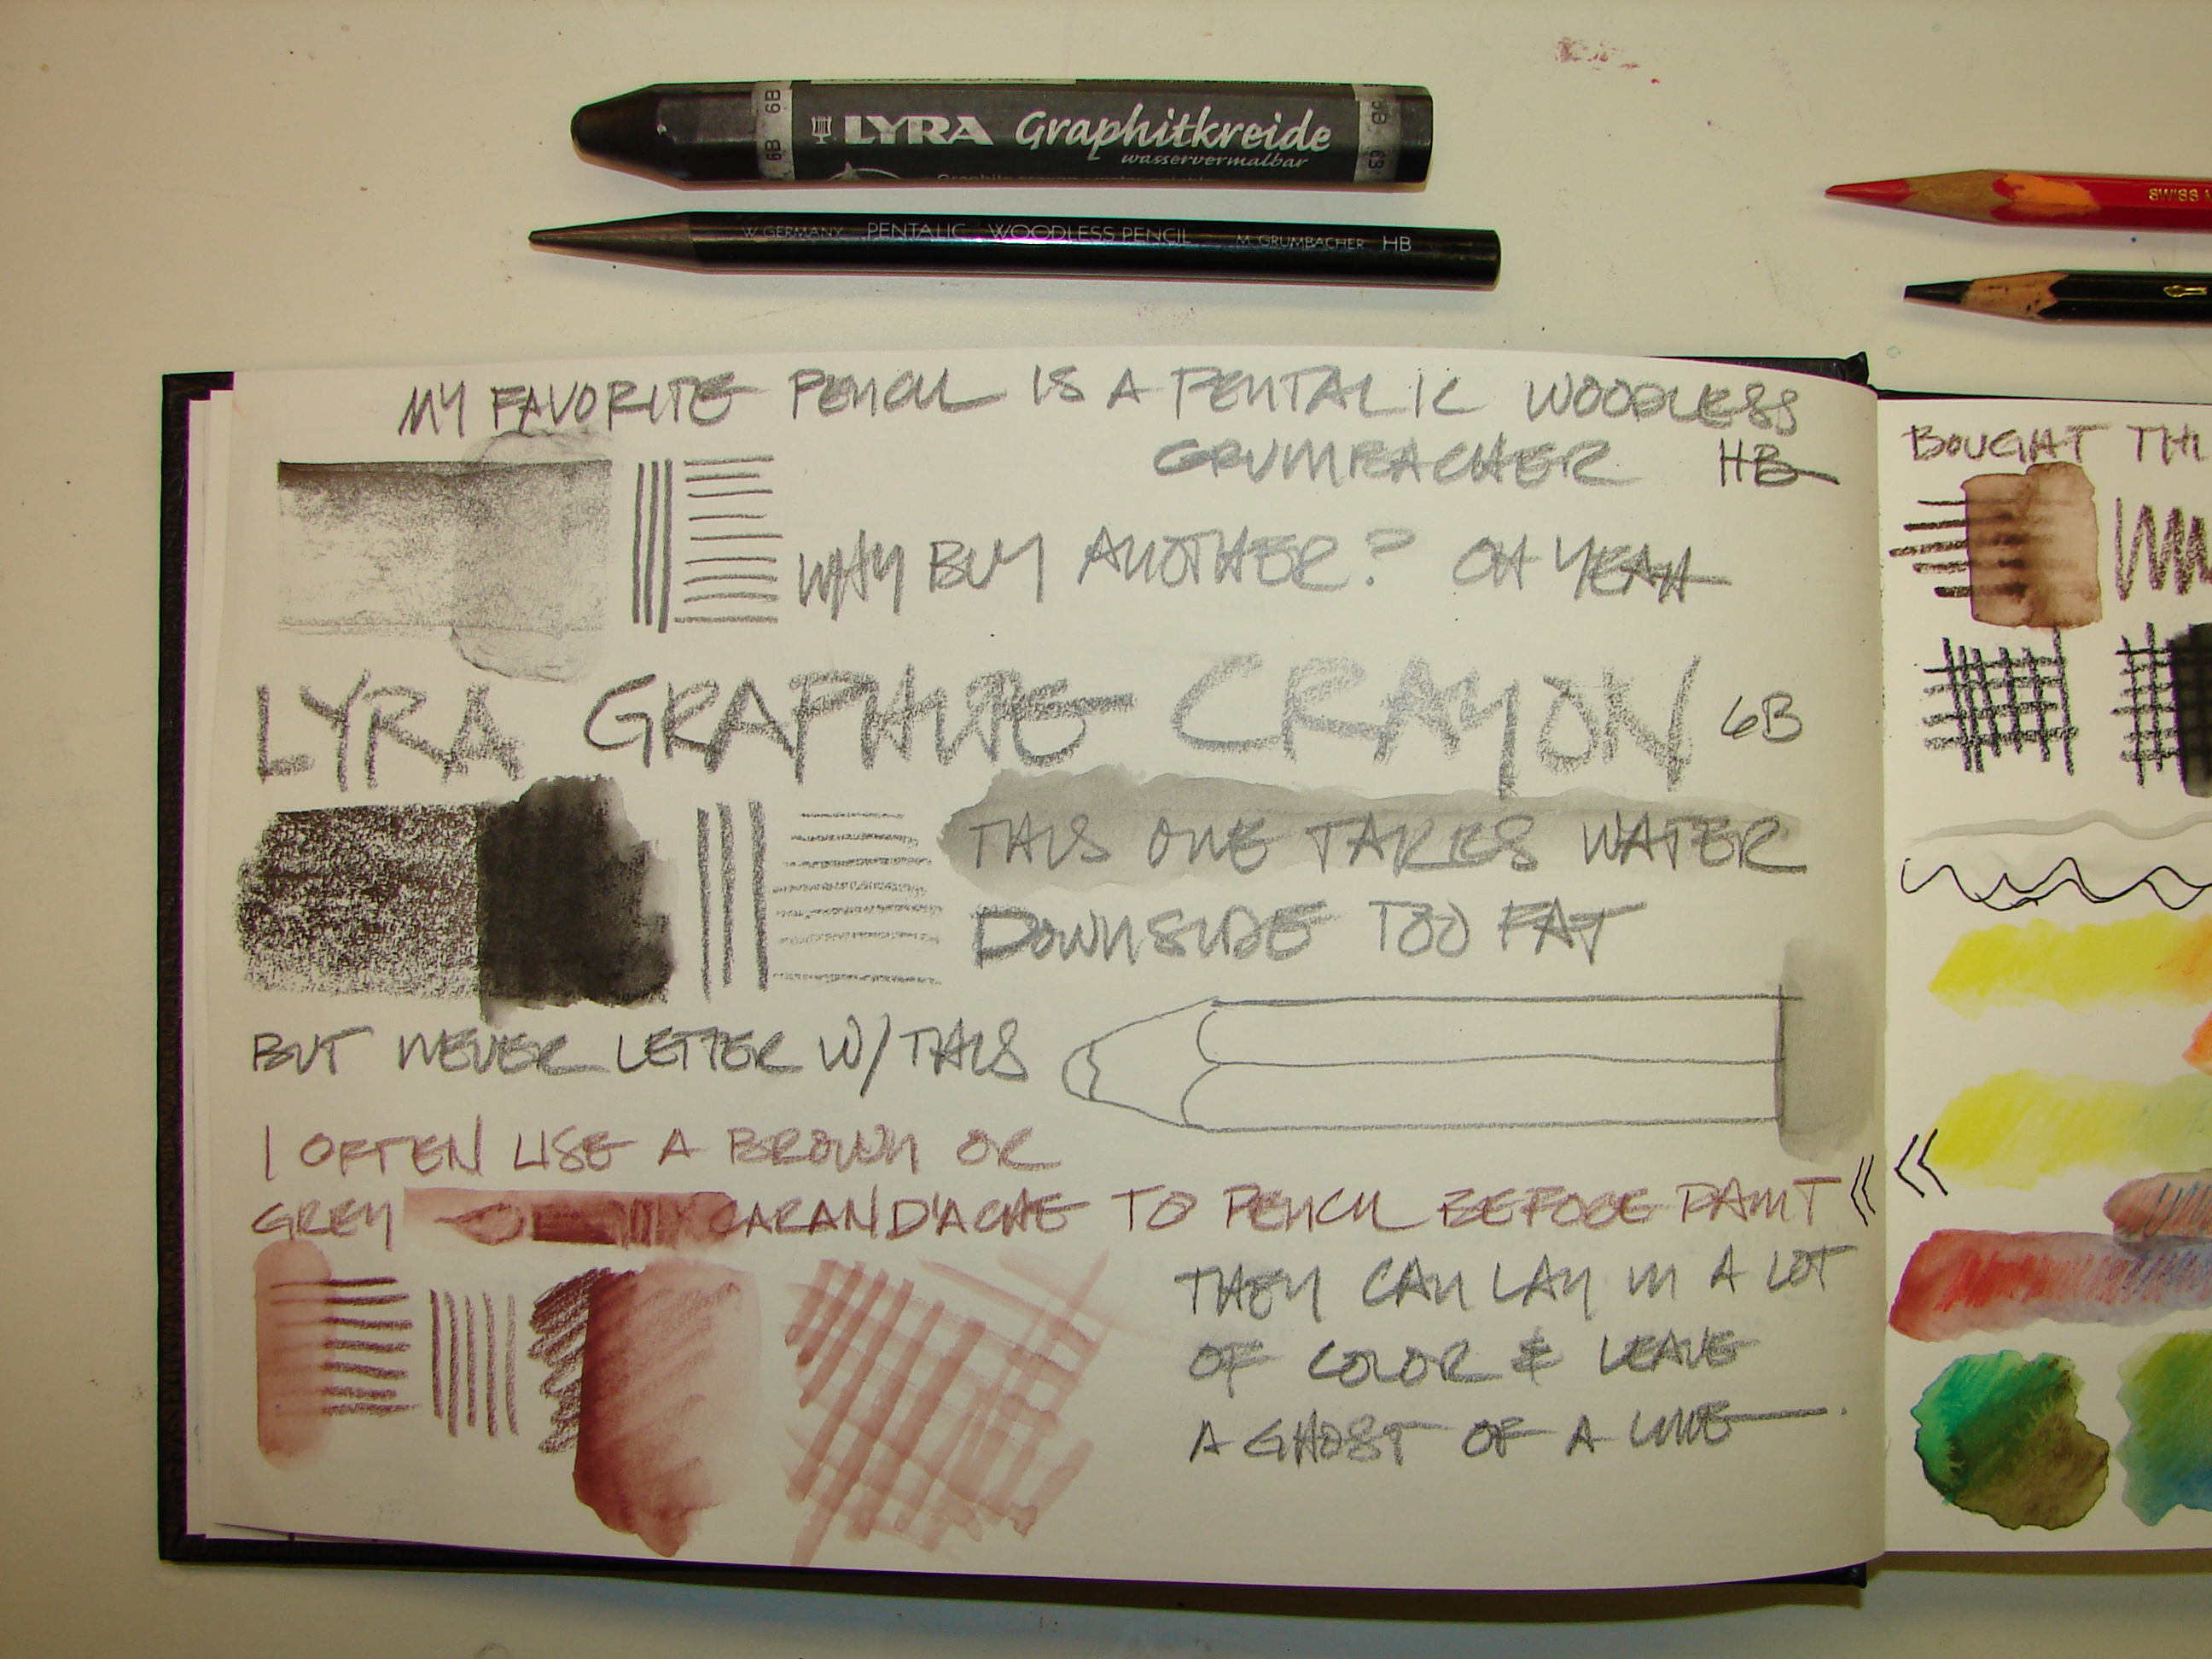 6B
6B
LYRA Graphitkreide
wasservermalbar
6B
6B
W. GERMANY PENTALIC WOODLESS PENCIL M. GRUMBACHER HB
SWISS
MY FAVORITE PENCIL IS A PENTALIC WOODLESS
GRUMBACHER HB
WHY BUY ANOTHER? OH YEAH
LYRA GRAPHITE CRAYON 6B
THIS ONE TAKES WATER
DOWNSIDE TOO FAT
BUT NEVER LETTER W/THIS
I OFTEN USE A BROWN OR
GREY CARAND'ACHE TO PENCIL BEFORE PAINT
THEY CAN LAY IN A LOT
OF COLOR & LEAVE
A GHOST OF A LINE
BOUGHT THI